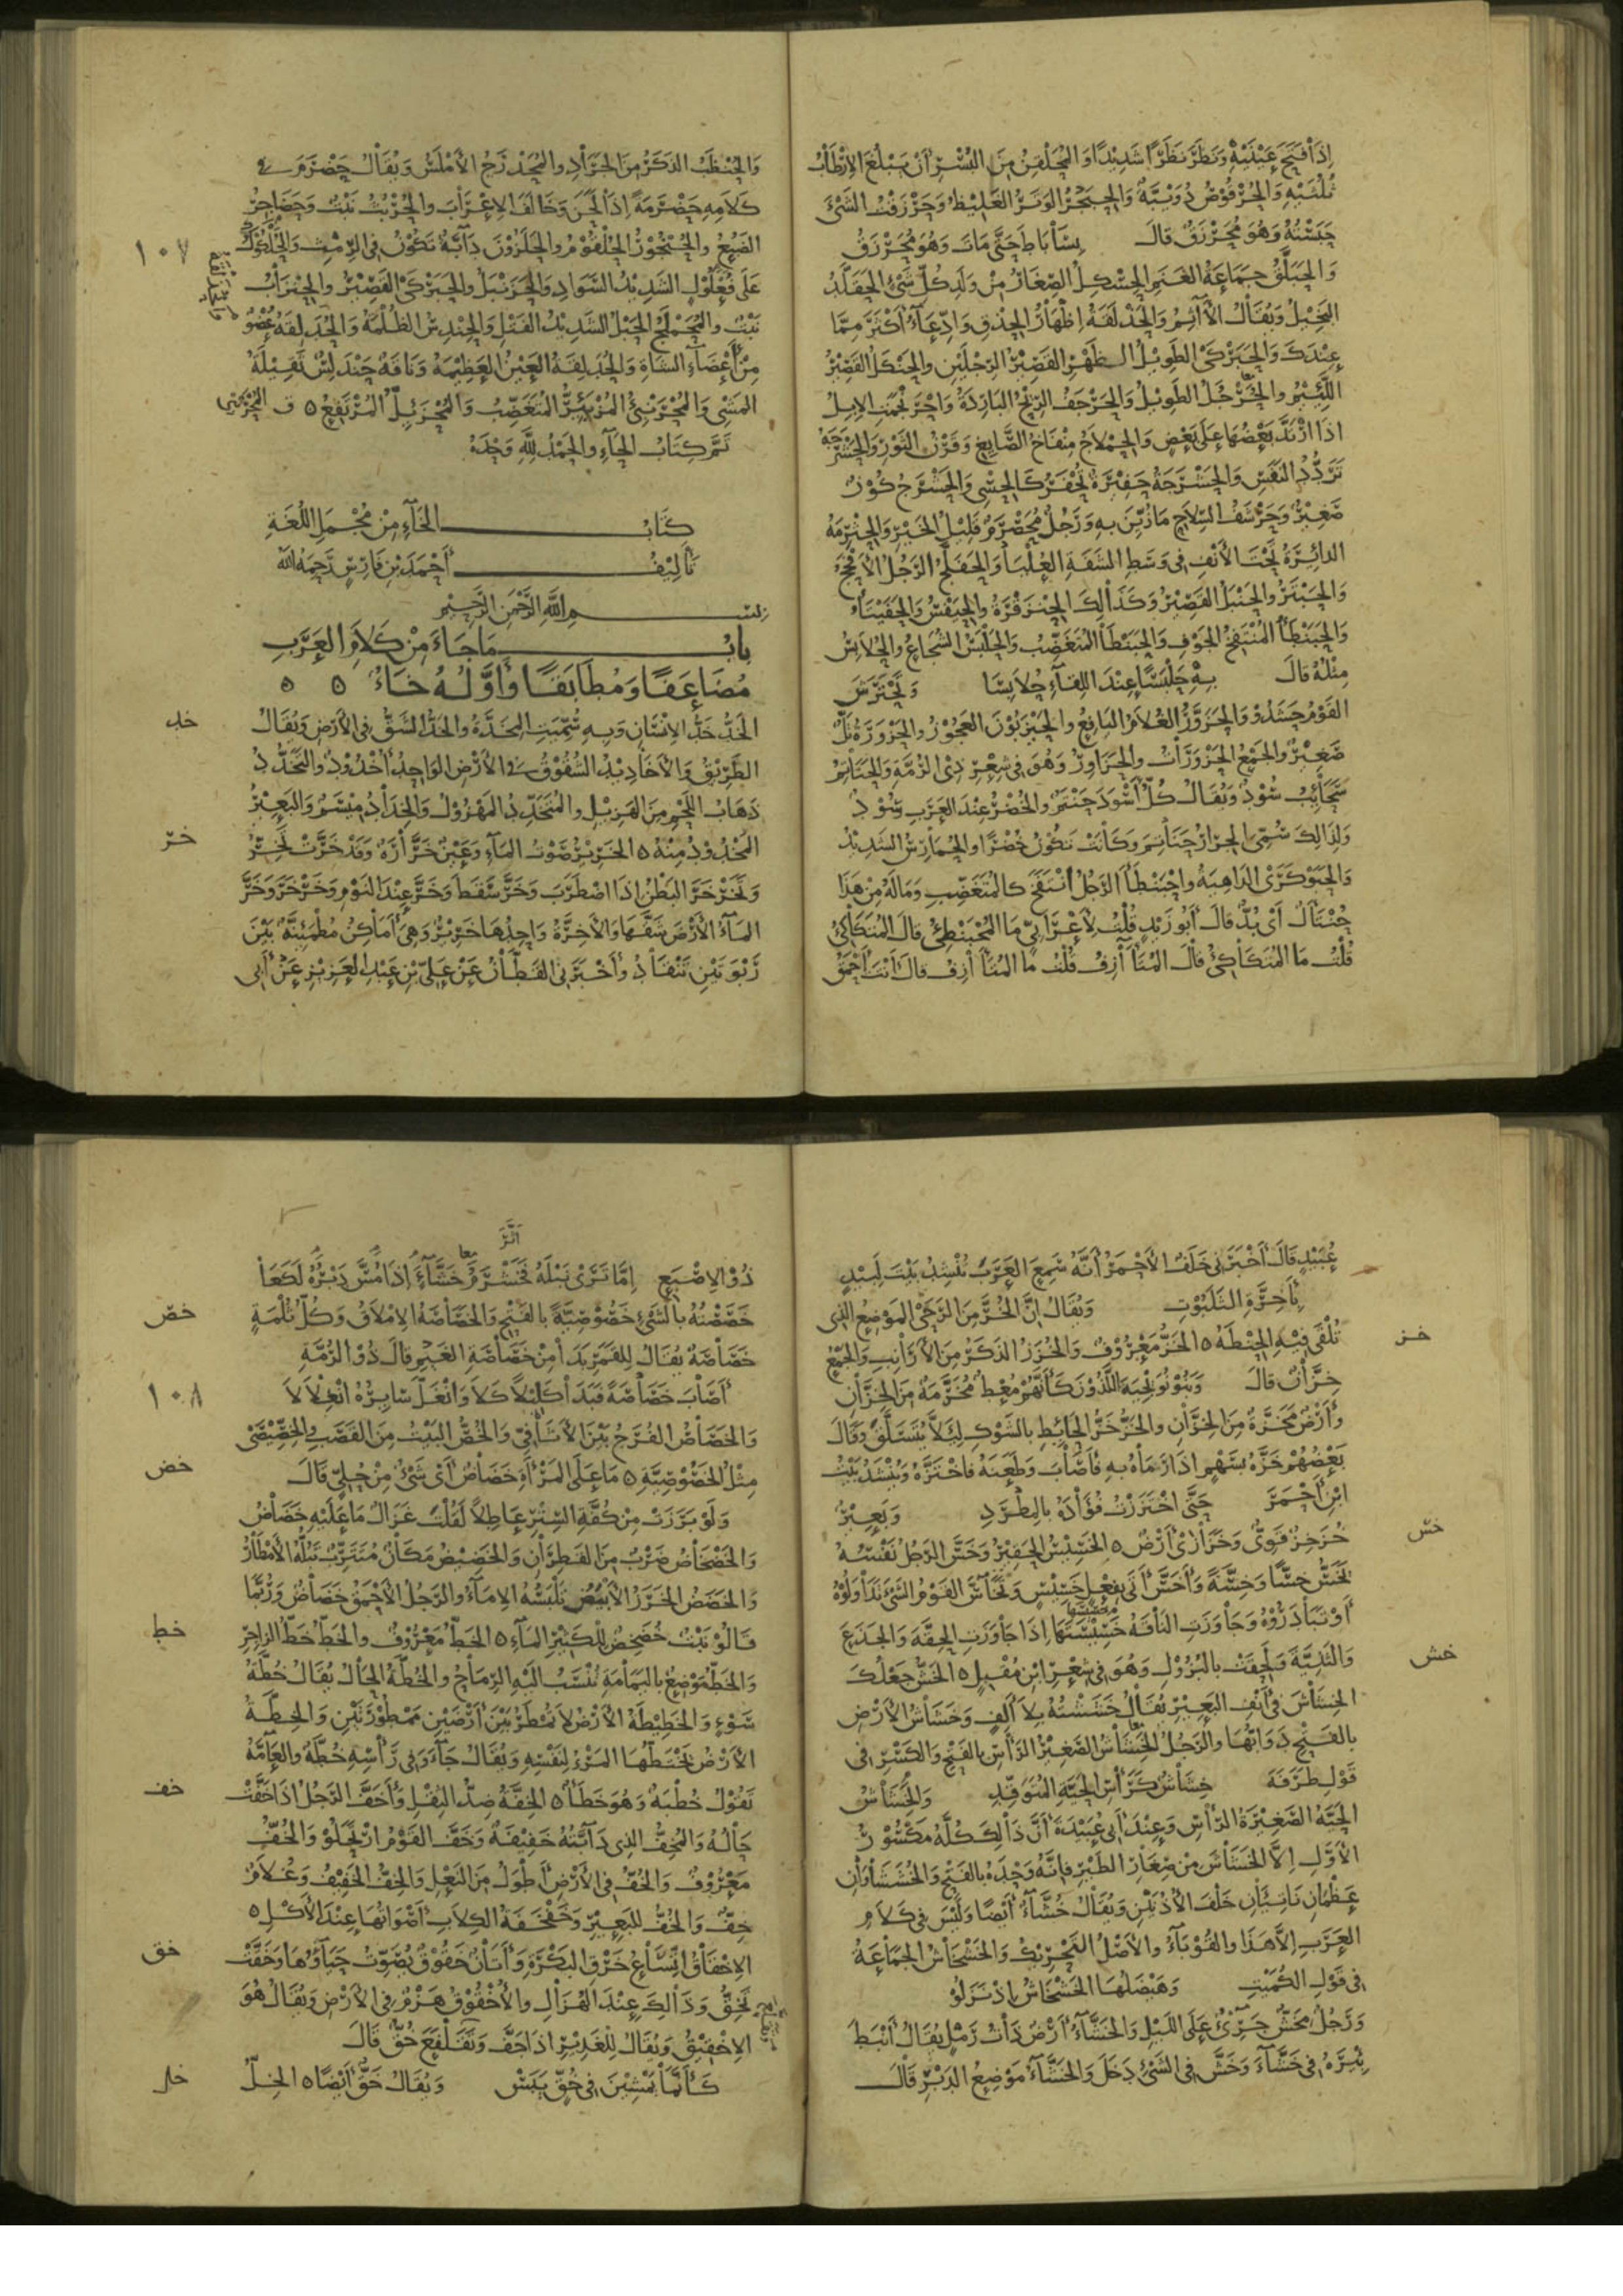 اِذَا فَتَحَ عَيْنَيْهِ وَنَظَرَ نَظَرًا شَدِيدًا وَالمُحَلْقِنُ مِنَ البُسْرِ اَنْ يَبْلُغَ الاِرْطَابُ
ثُلُثَيْهِ وَالحُرْقُوْصُ دُوَيْبَّةٌ وَالحِبَجْرُ الوَتَرُ الغَلِيظُ وَحَرْزَقْتُ الشَّىْءَ
حَبَسْتُهُ وَهُوَ مُحَرْزَقٌ قَالَ بِسَابَاطَ حَتَّى مَاتَ وَهُوَ مُحَرْزَقُ
وَالحَبَلَّقُ جَمَاعَةُ الغَنَمِ الحِسْكِلُ الصِّغَارُ مِنْ وَلَدِ كُلِّ شَىْءٍ الحَفَلَّدُ
البَخِيْلُ وَيُقَالُ الآثِمُ وَالحَذْلَقَةُ اِظْهَارُ الحِذْقِ وَادِّعَاءُ اَكْثَرَ مِمَّا
عِنْدَكَ وَالحَبَرْكَى الطَوِيْلُ الظَهْرِ القَصِيْرُ الرِّجْلَيْنِ وَالحَنْكَلُ القَصِيْرُ
اللَّئِيْمُ وَالحَرْجَلُ الطَوِيْلُ وَالحَرْجَفُ الرِّيْحُ البَارِدَةُ وَاحْرَنْجَمَتِ الاِبِلُ
اذَا ارْتَدَّ بَعْضُهَا عَلَى بَعْضٍ وَالحِمْلاَجُ مِنْفَاخُ الصَّايِغِ وَقَرْنُ الثَّوْرِ وَالحَشْرَجَةُ
تَرَدُّدُ النَّفَسِ وَالحَشْرَجَةُ حَفِيْرَةٌ تُحْفَرُ كَالحِسْىِ وَالحَشْرَجُ كُوْزٌ
صَغِيْرٌ وَحَرْشَفُ السِّلاَحِ مَا زُيِّنَ بِهِ وَرَجُلٌ مُحَصْرَمٌ قَلِيْلُ الخَيْرِ وَالحِثْرِمَةُ
الدائِرَةُ تَحْتَ الأَنْفِ فِى وَسَطِ الشَفَةِ العُلْيَا وَالحَفَلَّجُ الرَّجُلُ الأَفْحَجُ
وَالحَبْتَرُ وَالحَنْبَلُ القَصِيْرُ وَكَذَالِكَ الحِنْزَقْرَةُ وَالحِيَفْسُ وَالحَفَيْتَأُ
وَالحَبَنْطَأُ المُنْتَفِخُ الجَوْفِ وَالحَبَنْطَأُ المُتَغَضِّبُ وَالحَلْبَسُ الشُجَاعُ وَالحُلاَبِسُ
مِثْلُهُ قَالَ بِهِ حَلْبَسًا عِنْدَ اللِقَاءِ حُلاَبِسَا وَتَحَتْرَشَ
القَوْمُ حَشَدُوْ وَالحَزَوَّرُ الغُلاَمُ اليَافِعُ وَالحَيْزَبُوْنَ العَجُوْزُ وَالحَزْوَرَةُ تَلٌّ
صَغِيْرٌ وَالجَمْعُ الحَزْوَرَاتُ وَالحَزَاوِرُ وَهُوَ فِى شِعْرِ ذِى الرُّمَّةِ وَالحَنَاتِمُ
سَحَائِبُ سُوْدٌ وَيُقَالُ كُلُّ اَسْوَدَ حَنْتَمٌ وَالخُضْرُ عِنْدَ العَرَبِ سُوْدٌ
وَلِذَالِكَ سُمِّىَ الجِرَارُ حَنَاتِمَ وَكَانَتْ تَكُوْنُ خُضْرًا وَالحُمَارِسُ الشَدِيْدُ
وَالحَبَوْكَرَى الدَاهِيَةُ وَاحْبَنْطَأَ الرَّجُلُ انْتَفَخَ كَالمُتَغَضِّبِ وَمَالَهُ مِنْ هَذَا
حُنْتَاَلٌ اَىْ بُدٌّ قَالَ اَبُو زَيْدٍ قُلْتُ لِأَعْرَابِيٍّ مَا المُحْبَنْطِئُ قَالَ المُتَكَأْكِئُ
قُلْتُ مَا المُتَكَأْكِئُ قَالَ المُتَآزِفُ قُلْتُ مَا المُتَآزِفُ قَالَ اَنْتَ اَحْمَقُ
وَالحُنْظَبُ الذَكَرُ مِنَ الجَرَادِ وَالمُحَدْرَجُ الأَمْلَسُ وَيُقَالُ حَضْرَمَ فِى
كَلاَمِهِ حَضْرَمَةً اِذَا لَحَنَ وَخَالَفَ الاِعْرَابَ وَالحُرْبُثُ نَبْتٌ وَحَضَاجِرُ
الضَبُعُ وَالحُنْجُوْرُ الحُلْقُوْمُ وَالحَلَزُوْنَ دَآبَّةٌ تَكُوْنُ فِى الرِّمْثِ وَالحُلْكُوْكُ
١٠٧
عَلَى فُعْلُوْلٍ الشَدِيْدُ السَّوَادِ وَالحَزَنْبَلُ وَالحَبَرْكَى القَصِيْرُ وَالحِنْزَابُ
نَبْتٌ وَالمُحَمْلَجُ الحَبْلُ الشَدِيْدُ الفَتْلِ وَالحِنْدِسُ الظُلْمَةُ وَالحُدَلِقَةُ عُضْوٌ
مِنْ أَعْضَآءِ الشَاةِ وَالحُدَلِقَةُ العَيْنُ العَظِيْمَةُ وَنَاقَةٌ حَنْدَلِسٌ ثَقِيْلَةُ
المَشْىِ وَالمُحْرَنْبِئُ المُزْبَئِرُّ المُتَغَضِّبُ وَالمُحْزَئِلُّ المُرْتَفِعُ ٥
تَمَّ كِتَابُ الحَآءِ وَالحَمْدُ لِلَّهِ وَحْدَهُ
كِتَابُ الخَآءِ مِنْ مُجْمَلِ اللُغَةِ
تَأْلِيْفُ أَحْمَدَ بْنِ فَارِسٍ رَحِمَهُ اللّه
بِسْمِ اللَّهِ الرَّحْمَنِ الرَّحِيْمِ
بابُ مَا جَاءَ مِنْ كَلاَمِ العَرَبِ
مُضَاعَفًا وَمُطَابَقًا وَأَوَّلُهُ خَاءٌ ٥ ٥
خد
الخَدُّ خَدُّ الاِنْسَانِ وَبِهِ سُمِّيَتِ المِخَدَّةُ وَالخَدُّ الشَقُّ فِى الأَرْضِ وَيُقَالُ
الطَّرِيْقُ وَالأَخَادِيْدُ الشُقُوْقُ فِى الأَرْضِ الوَاحِدُ أُخْدُوْدٌ وَالتَخَدُّدُ
ذَهَابُ اللَّحْمِ مِنَ الهَزِيْلِ وَالمُتَخَدِّدُ المَهْزُوْلُ وَالخِدَادُ مِيْسَمٌ وَالبَعِيْرُ
خرّ
المَخْدُوْدُ مِنْهُ ٥ الخَرِيْرُ صَوْتُ المَآءِ وَعَيْنٌ خَرَّارَةٌ وَقَدْ خَرَّتْ تَخِرُّ
وَتَخَرْخَرَ البَطْنُ اِذَا اضْطَرَبَ وَخَرَّ سَقَطَ وَخَرَّ عِنْدَ النَوْمِ وَخَرْخَرَ وَخَرَّ
المَآءُ الأَرْضَ شَقَّهَا وَالأَخِرَّةُ وَاحِدُهَا خَرِيْرٌ وَهِىَ أَمَاكِنُ مُطْمَئِنَّةٌ بَيْنَ
رَبْوَتَيْنِ تَنْقَادُ وَأَخْبَرَنِى القَطَّانُ عَنْ عَلِىِّ بْنِ عَبْدِ العَزِيْزِ عَنْ أَبِى
عُبَيْدٍ قَالَ أَخْبَرَنِى خَلَفٌ الأَحْمَرُ أَنَّهُ سَمِعَ العَرَبَ تُنْشِدُ بَيْتَ لَبِيْدٍ
بِأَخِرَّةِ الثَلَبُوْتِ وَيُقَالُ اِنَّ الخُرَّ مِنَ الرَحَى المَوْضِعُ الذِى
خز
تُلْقَى فِيْهِ الحِنْطَةُ ٥ الخَزُّ مَعْرُوْفٌ وَالخُزَزُ الذَكَرُ مِنَ الأَرَانِبِ وَالجَمْعُ
خِزَّانٌ قَالَ وَبَنُو نُوَيْجِيَةَ اللَّذُوْنَ كَأَنَّهُمْ مُعْطٌ مُخَزَّمَةٌ مِنَ الخِزَّانِ
وَأَرْضٌ مَخَزَّةٌ مِنَ الخِزَّانِ وَالخَزُّ خَزُّ الحَائِطِ بِالشَوْكِ لِيَلاَّ يُتَسَلَّقَ وَقَالَ
بَعْضُهُمْ خَزَّهُ بِسَهْمٍ اذَا رَمَاهُ بِهِ فَأَصَابَ وَطَعَنَهُ فَاخْتَزَّهُ وَيُنْشَدُ بَيْتُ
ابْنِ أَحْمَرَ حَتَّى اخْتَزَزْتُ فُؤَادَهُ بِالمِطْرَدِ وَبَعِيْرٌ
خسّ
خُزَخِزٌ قَوِىٌّ وَخَزَازَى أَرْضٌ ٥ الخَسِيْسُ الحَقِيْرُ وَخَسَّ الرَّجُلُ نَفْسُهُ
يَخَسُّ خِسًّا وَخِسَّةً وَأَخَسَّ أَتَى بِفِعْلٍ خَسِيْسٍ وَتَخَآسَّ القَوْمُ الشَىْءَ تَدَاوَلُوْهُ
أَوْ تَبَادَرُوْهُ وَجَاوَزَتِ النَاقَةُ خَسِيْسَتَهَا اِذَا جَاوَزَتِ الحِقَّةَ وَالجَذَعَ
خش
وَالثَنِيَّةَ وَلَحِقَتْ بِالبُزُوْلِ وَهُوَ فِى شِعْرِ ابْنِ مُقْبِلٍ ٥ الخَشُّ جَعْلُكَ
الخِشَاشَ فِى أَنْفِ البَعِيْرِ يُقَالُ خَشَشْتُهُ بِلاَ أَلِفٍ وَخَشَاشُ الأَرْضِ
بِالفَتْحِ دَوَابُّهَا وَالرَجُلُ الخَشَاشُ الصَغِيْرُ الرَأْسِ بِالفَتْحِ وَالكَسْرِ فِى
قَوْلِ طَرَفَةَ خِشَاشٌ كَرَأْسِ الحَيَّةِ المُتَوَقِّدِ وَالخِشَاشُ
الحَيَّةُ الصَغِيْرَةُ الرَّأْسِ وَعِنْدَ أَبِى عُبَيْدَةَ أَنَّ ذَالِكَ كُلَّهُ مَكْسُوْرٌ
الأَوَّلِ اِلاَّ الخَشَاشَ مِنْ صِغَارِ الطَيْرِ فَاِنَّهُ وَحْدَهُ بِالفَتْحِ وَالخُشَشَاوَانِ
عَظْمَانِ نَاتِيَانِ خَلْفَ الأُذُنَيْنِ وَيُقَالُ خُشَّاءٌ أَيْضًا وَلَيْسَ فِى كَلاَمِ
العَرَبِ اِلاَّ هَذَا وَالقُوْبَآءُ وَالأَصْلُ التَحْرِيْكُ وَالخَشْخَاشُ الجَمَاعَةُ
فِى قَوْلِ الكُمَيْتِ وَهَيْضَلُهَا الخَشْخَاشُ اِذْ نَزَلُوْ
وَرَجُلٌ مِخَشٌّ جَرِىْءٌ عَلَى اللَيْلِ وَالخَشَّآءُ أَرْضٌ ذَاتُ رَمْلٍ يُقَالُ أَنْبَطَ
بِئْرَهُ فِى خَشَّآءَ وَخَشَّ فِى الشَىْءِ دَخَلَ وَالخَشَّآءُ مَوْضِعُ الدَبْرِ قَالَ
اثَرَ
ذُوْ الاِصْبَعِ اِمَّا تَرَىْ نَبْلَهُ فَخَشْرَمُ خَشَّآءَ اِذَا مُسَّ دَبْرُهُ لَكَعَا
خصّ
خَصَصْتُهُ بِالشَىْءِ خَصُوْصِيَّةً بِالفَتْحِ وَالخَصَاصَةُ الاِمْلاَقُ وَكُلُّ ثُلْمَةٍ
خَصَاصَةٌ يُقَالُ لِلقَمَرِ بَدَا مِنْ خَصَاصَةِ الغَيْمِ وَقَالَ ذُوْ الرُمَّةِ
١٠٨
أَصَابَ خَصَاصَةً فَبَدَا كَلِيْلاً كَلاَ وَانْغَلَّ سَائِرُهُ انْغِلاَلاَ
وَالخَصَاصُ الفُرَجُ بَيْنَ الأَثَافِىِّ وَالخُصُّ البَيْتُ مِنَ القَصَبِ وَالخِصِّيْصَى
خض
مِثْلُ الخَصُوْصِيَّةِ ٥ مَا عَلَى المَرْأَةِ خَضَاضٌ أَىْ شَىْءٌ مِنْ حُلِىٍّ قَالَ
وَلَوْ بَرَزَتْ مِنْ كُفَّةِ السِّتْرِ عَاطِلاً لَقُلْتَ غَزَالٌ مَا عَلَيْهِ خَضَاضُ
وَالخَضْخَاضُ ضَرْبٌ مِنَ القَطِرَانِ وَالخَضِيْضُ مَكَانٌ مُتَتَرِّبٌ تَبُلُّهُ الأَمْطَارُ
وَالخَضَضُ الخَرَزُ الأَبْيَضُ تَلْبَسُهُ الاِمَآءُ وَالرَجُلُ الأَحْمَقُ خَضَاضٌ وَرُبَّمَا
خط
قَالُوْ نَبْتٌ خُضَخِضٌ لِلْكَثِيْرِ المَآءِ ٥ الخَطُّ مَعْرُوْفٌ وَالخَطُّ خَطُّ الزَاجِرِ
وَالخَطُّ مَوْضِعٌ بِاليَمَامَةِ تُنْسَبُ اِلَيْهِ الرِّمَاحُ وَالخُطَّةُ الحَالُ يُقَالُ خُطَّةُ
سَوْءٍ وَالخَطِيْطَةُ الأَرْضُ لاَ تُمْطَرُ بَيْنَ أَرْضَيْنِ مَمْطُوْرَتَيْنِ وَالخِطَّةُ
الأَرْضُ يَخْتَطُّهَا المَرْءُ لِنَفْسِهِ وَيُقَالُ جَآءَ وَفِى رَأْسِهِ خُطَّةٌ وَالعَامَّةُ
خف
تَقُوْلُ خُطْبَةٌ وَهُوَ خَطَأٌ ٥ الخِفَّةُ ضِدُّ الثِقْلِ وَأَخَفَّ الرَجُلُ اذَا خَفَّتْ
حَالُهُ وَالمُخِفُّ الذِى دَآبَّتُهُ خَفِيْفَةٌ وَخَفَّ القَوْمُ ارْتَحَلُوْ وَالخُفُّ
مَعْرُوْفٌ وَالخُفُّ فِى الأَرْضِ أَطْوَلُ مِنَ النَعْلِ وَالخِفُّ الخَفِيْفُ وَغُلاَمٌ
خِفٌّ وَالخُفُّ لِلبَعِيْرِ وَخَفْخَفَةُ الكِلاَبِ أَصْوَاتُهَا عِنْدَ الأَكْلِ ٥
خق
الاِخْقَاقُ اتِّسَاعُ خَرْقِ البَكْرَةِ وَأَتَانٌ خَقُوْقٌ يُصَوِّتُ حَيَاؤُهَا وَخَقَّتْ
تَخِقُّ وَذَالِكَ عِنْدَ الهُزَالِ وَالأُخْقُوْقُ هَزْمٌ فِى الأَرْضِ وَيُقَالُ هُوَ
الاِخْقِيْقُ وَيُقَالُ لِلْغَدِيْرِ اذَا جَفَّ وَتَقَلْفَعَ خُقٌّ قَالَ
خل
كَأَنَّمَا يَمْشِيْنَ فِى خُقٍّ يَبَسْ وَيُقَالُ خَقٌّ أَيْضًا ٥ الخِلُّ